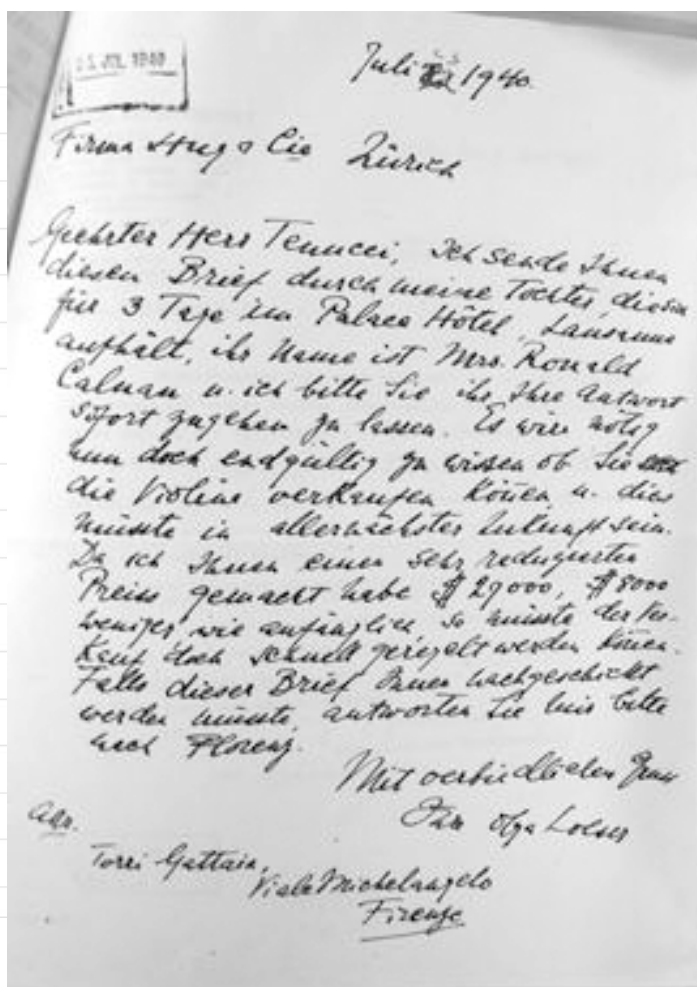 JUL 1940
Juli 1940.
Firma Hug & Cie Zürich
Geehrter Herr Tenucci, Ich sende Ihnen
diesen Brief durch meine Tochter, die sich
für 3 Tage im Palace Hôtel, Lausanne
aufhält, ihr Name ist Mrs. Ronald
Calman u. ich bitte Sie ihr Ihre Antwort
sofort zugehen zu lassen. Es wäre nötig
nun doch endgültig zu wissen ob Sie
die Violine verkaufen können u. dies
müsste in allernächster Zukunft sein.
Da ich Ihnen einen sehr reduzierten
Preiss gemacht habe $ 29000, $ 8000
weniger wie anfänglich, so müsste der Ver-
kauf doch schnell geregelt werden können.
Falls dieser Brief Ihnen nachgeschickt
werden müsste, antworten Sie mir bitte
nach Florenz.
Mit verbindlichem Gruss
Ihre Olga Loeser
Adr.
Torri Gattaia,
Viale Michelangelo
Firenze